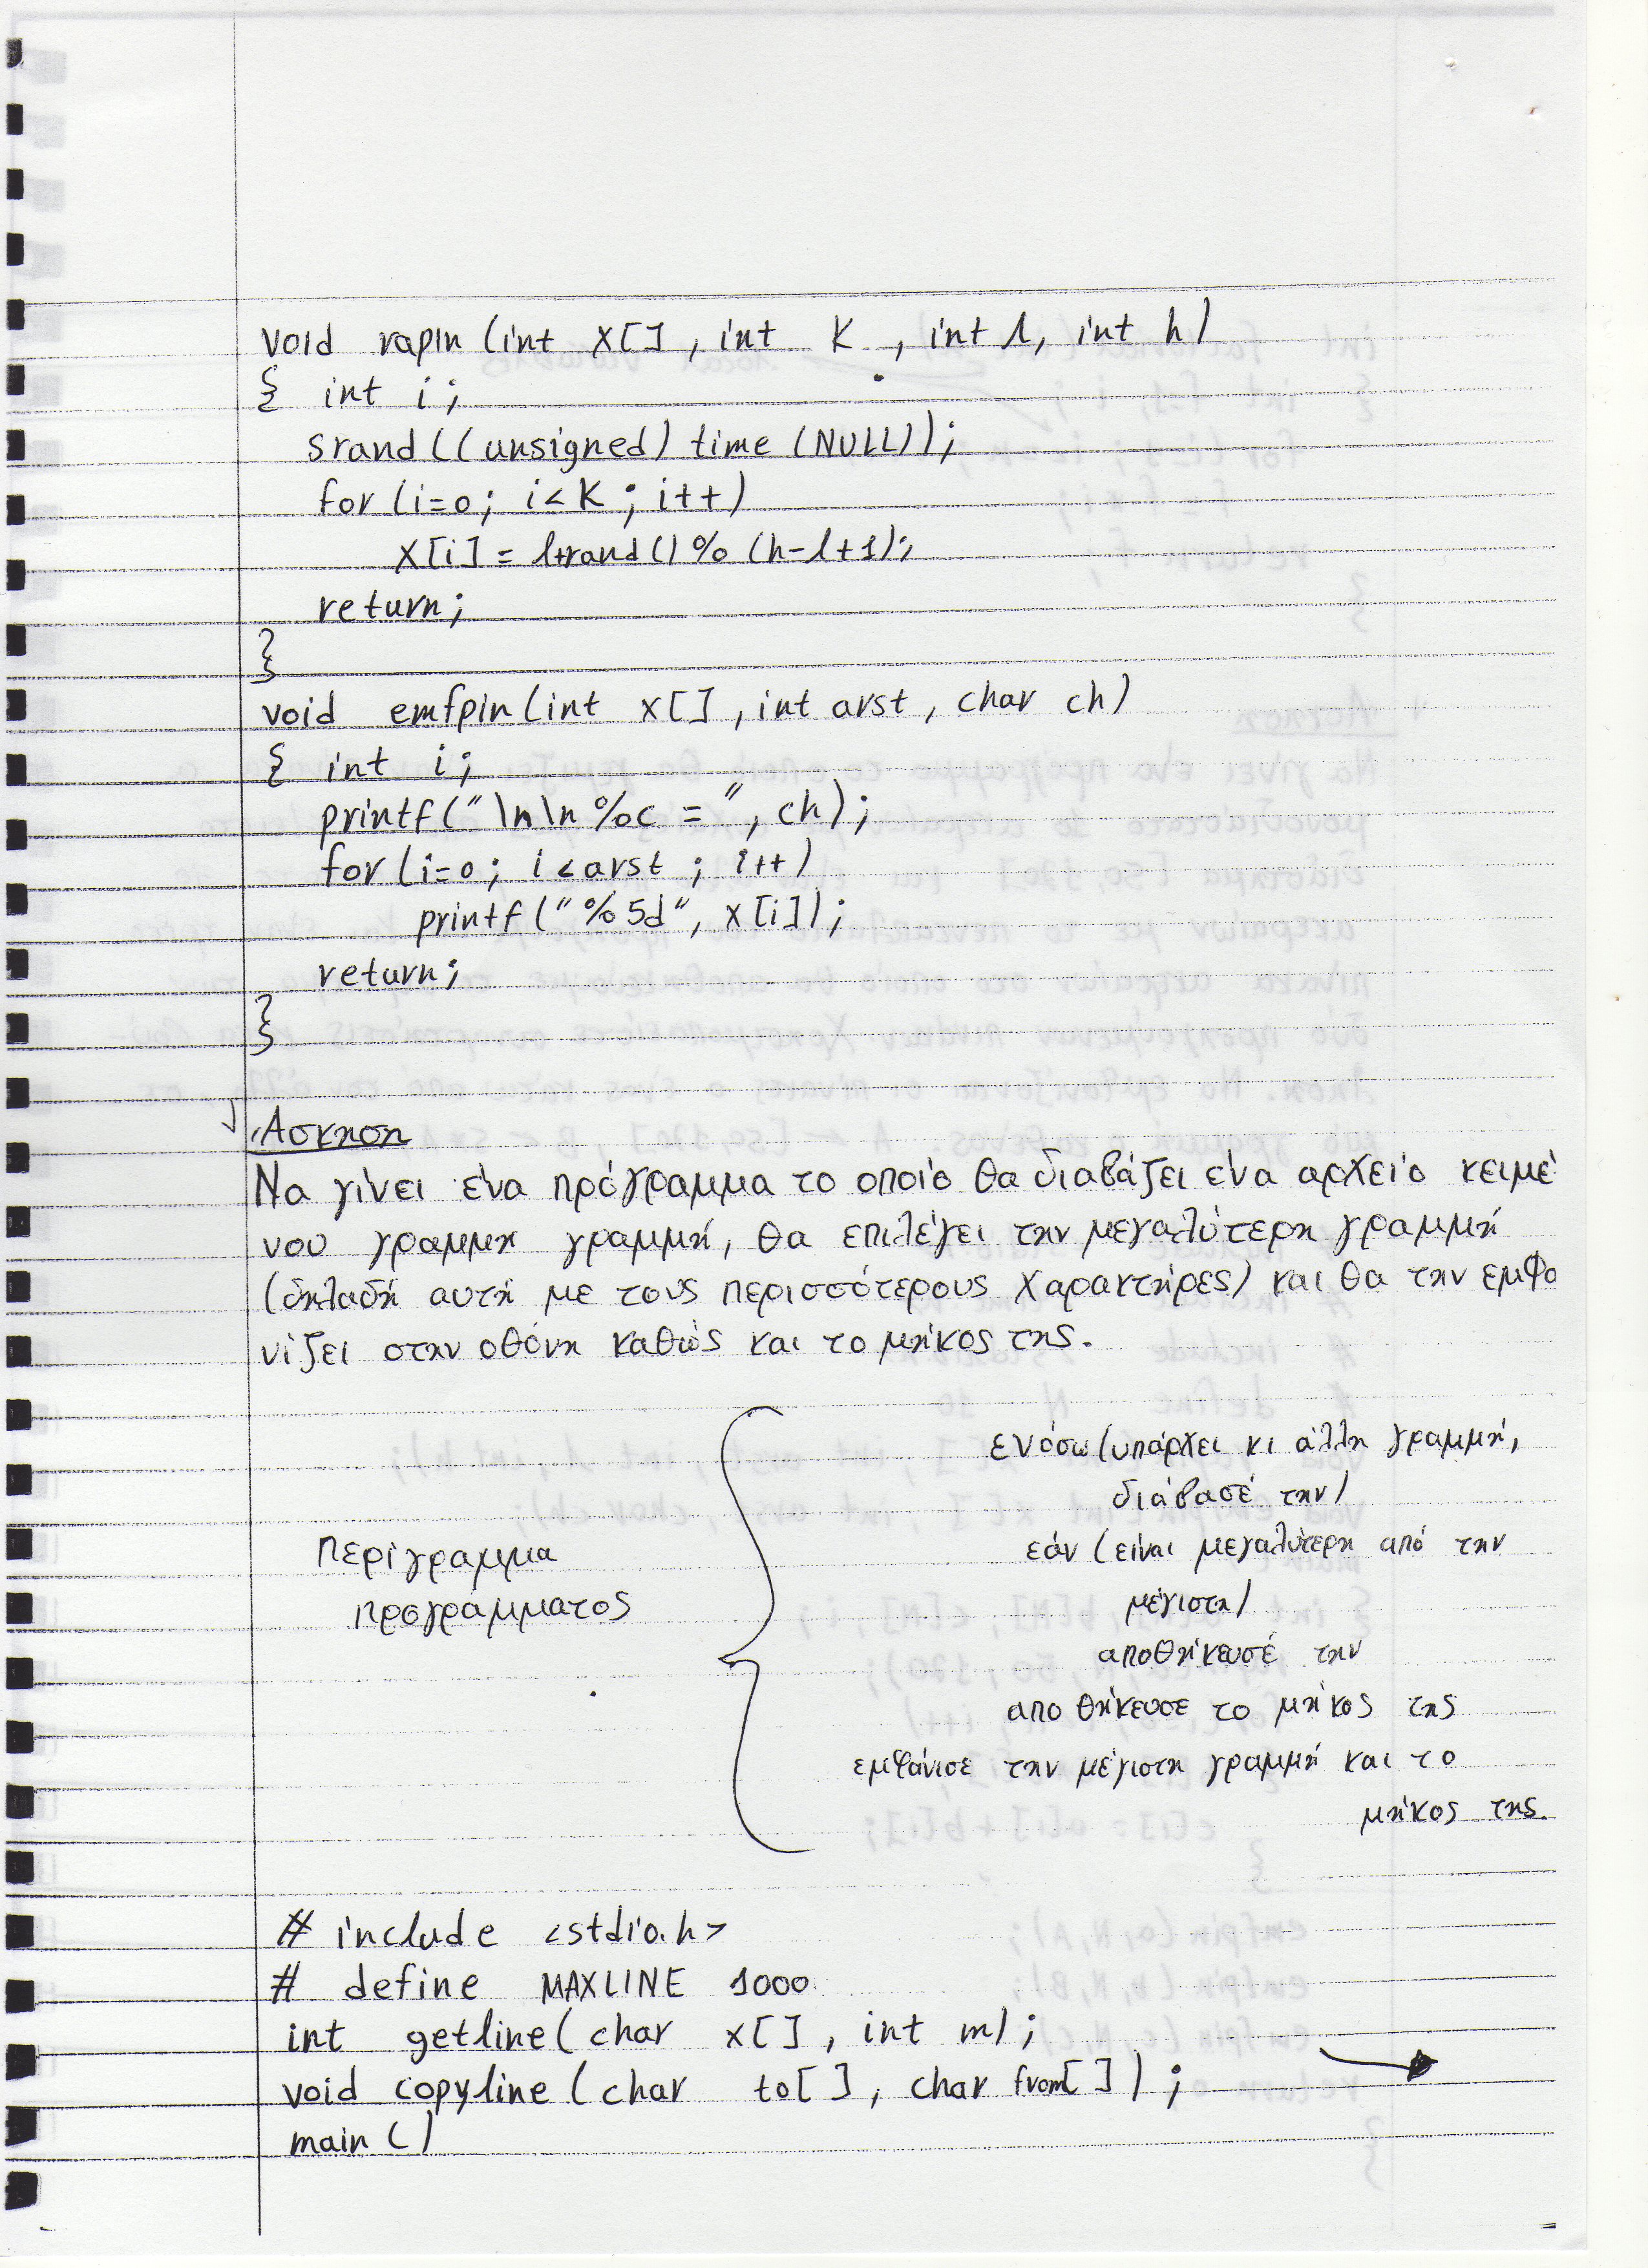 void rapin (int x[], int K , int l, int h)
{ int i;
srand((unsigned) time (NULL));
for (i=0; i<K; i++)
x[i] = l+rand()%(h-l+1);
return;
}
void emfpin (int x[], int arst, char ch)
{ int i;
printf("\n\n%c =", ch);
for (i=0; i<arst ; i++)
printf("%5d", x[i]);
return;
}
Άσκηση
Να γίνει ένα πρόγραμμα το οποίο θα διαβάζει ένα αρχείο κειμέ
νου γραμμη γραμμή, θα επιλέγει την μεγαλύτερη γραμμή
(δηλαδή αυτή με τους περισσότερους χαρακτήρες) και θα την εμφα
νίζει στην οθόνη καθώς και το μήκος της.
ενόσω (υπάρχει κι άλλη γραμμή,
διάβασέ την)
εάν (είναι μεγαλύτερη από την
μέγιστη)
αποθήκευσέ την
αποθήκευσε το μήκος της
εμφάνισε την μέγιστη γραμμή και το
μήκος της.
Περίγραμμα
προγράμματος
# include <stdio.h>
# define MAXLINE 1000
int getline( char x[], int m);
void copyline ( char to[ ], char from[ ]) ;
main ()